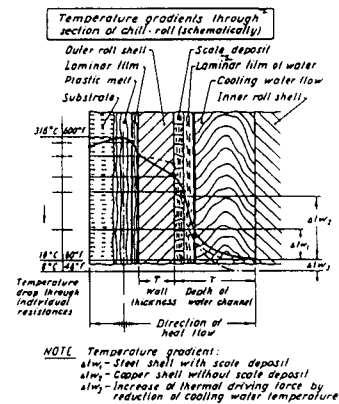 Temperature gradients through
section of chill-roll (schematically)
Outer roll shell
Laminar film
Plastic melt
Substrate
Scale deposit
Laminar film of water
Cooling water flow
Inner roll shell
318°C 600°F
Δtw₂
Δtw₁
Δtw₃
Temperature
drop through
individual
resistances
T
T
Wall
thickness
Depth of
water channel
Direction of
heat flow
NOTE Temperature gradient:
Δtw₁ - Steel shell with scale deposit
Δtw₂ - Copper shell without scale deposit
Δtw₃ - Increase of thermal driving force by
reduction of cooling water temperature